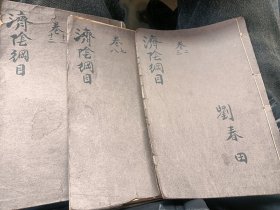 濟陰綱目
卷二
濟陰綱目
卷八九
濟陰綱目
卷三
劉春田